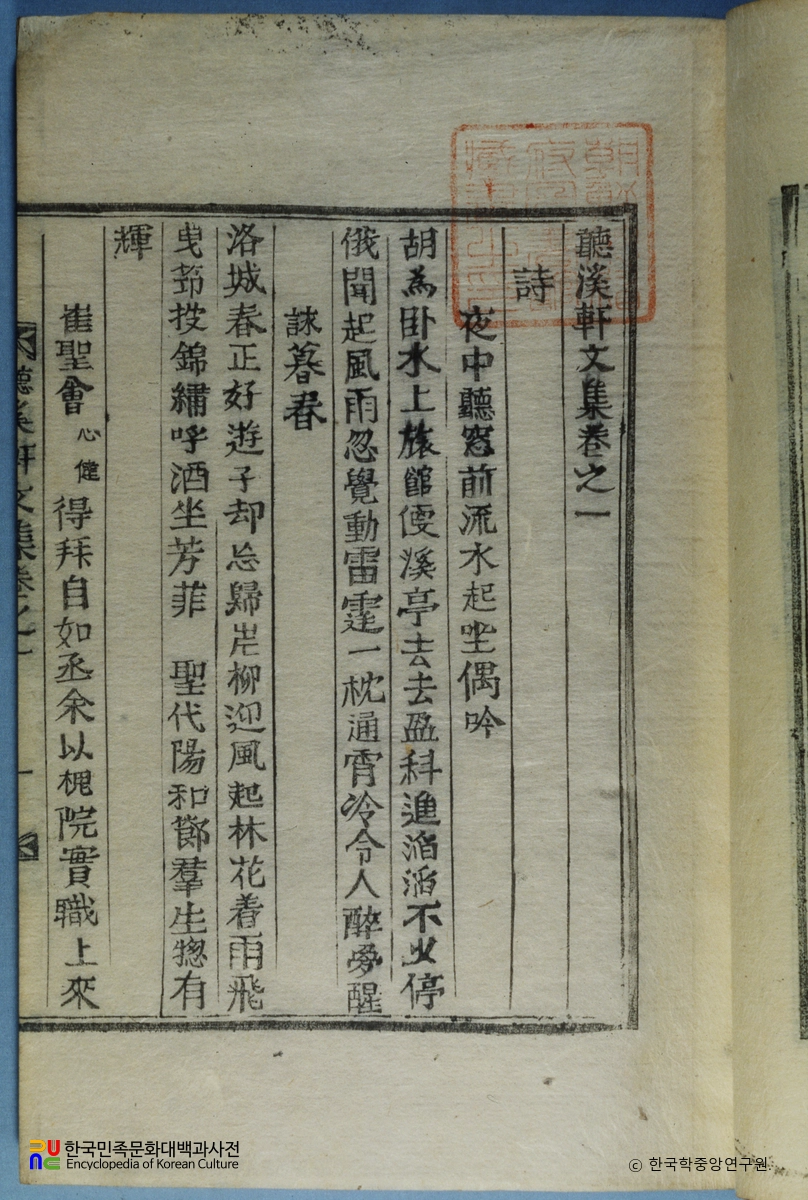 聽溪軒文集卷之一
詩
夜中聽窓前流水起坐偶吟
胡為卧水上旅館傻溪亭去去盈科進滔滔不少停
俄聞起風雨忽覺動雷霆一枕通宵冷令人醉夢醒
詠暮春
洛城春正好遊子却忘歸岸柳迎風起林花着雨飛
曳筇披錦繡呼酒坐芳菲 聖代陽和節羣生摠有
輝
崔聖會 心健 得拜自如丞余以槐院實職上來
聽溪軒文集卷之一 一
한국민족문화대백과사전
Encyclopedia of Korean Culture
ⓒ 한국학중앙연구원